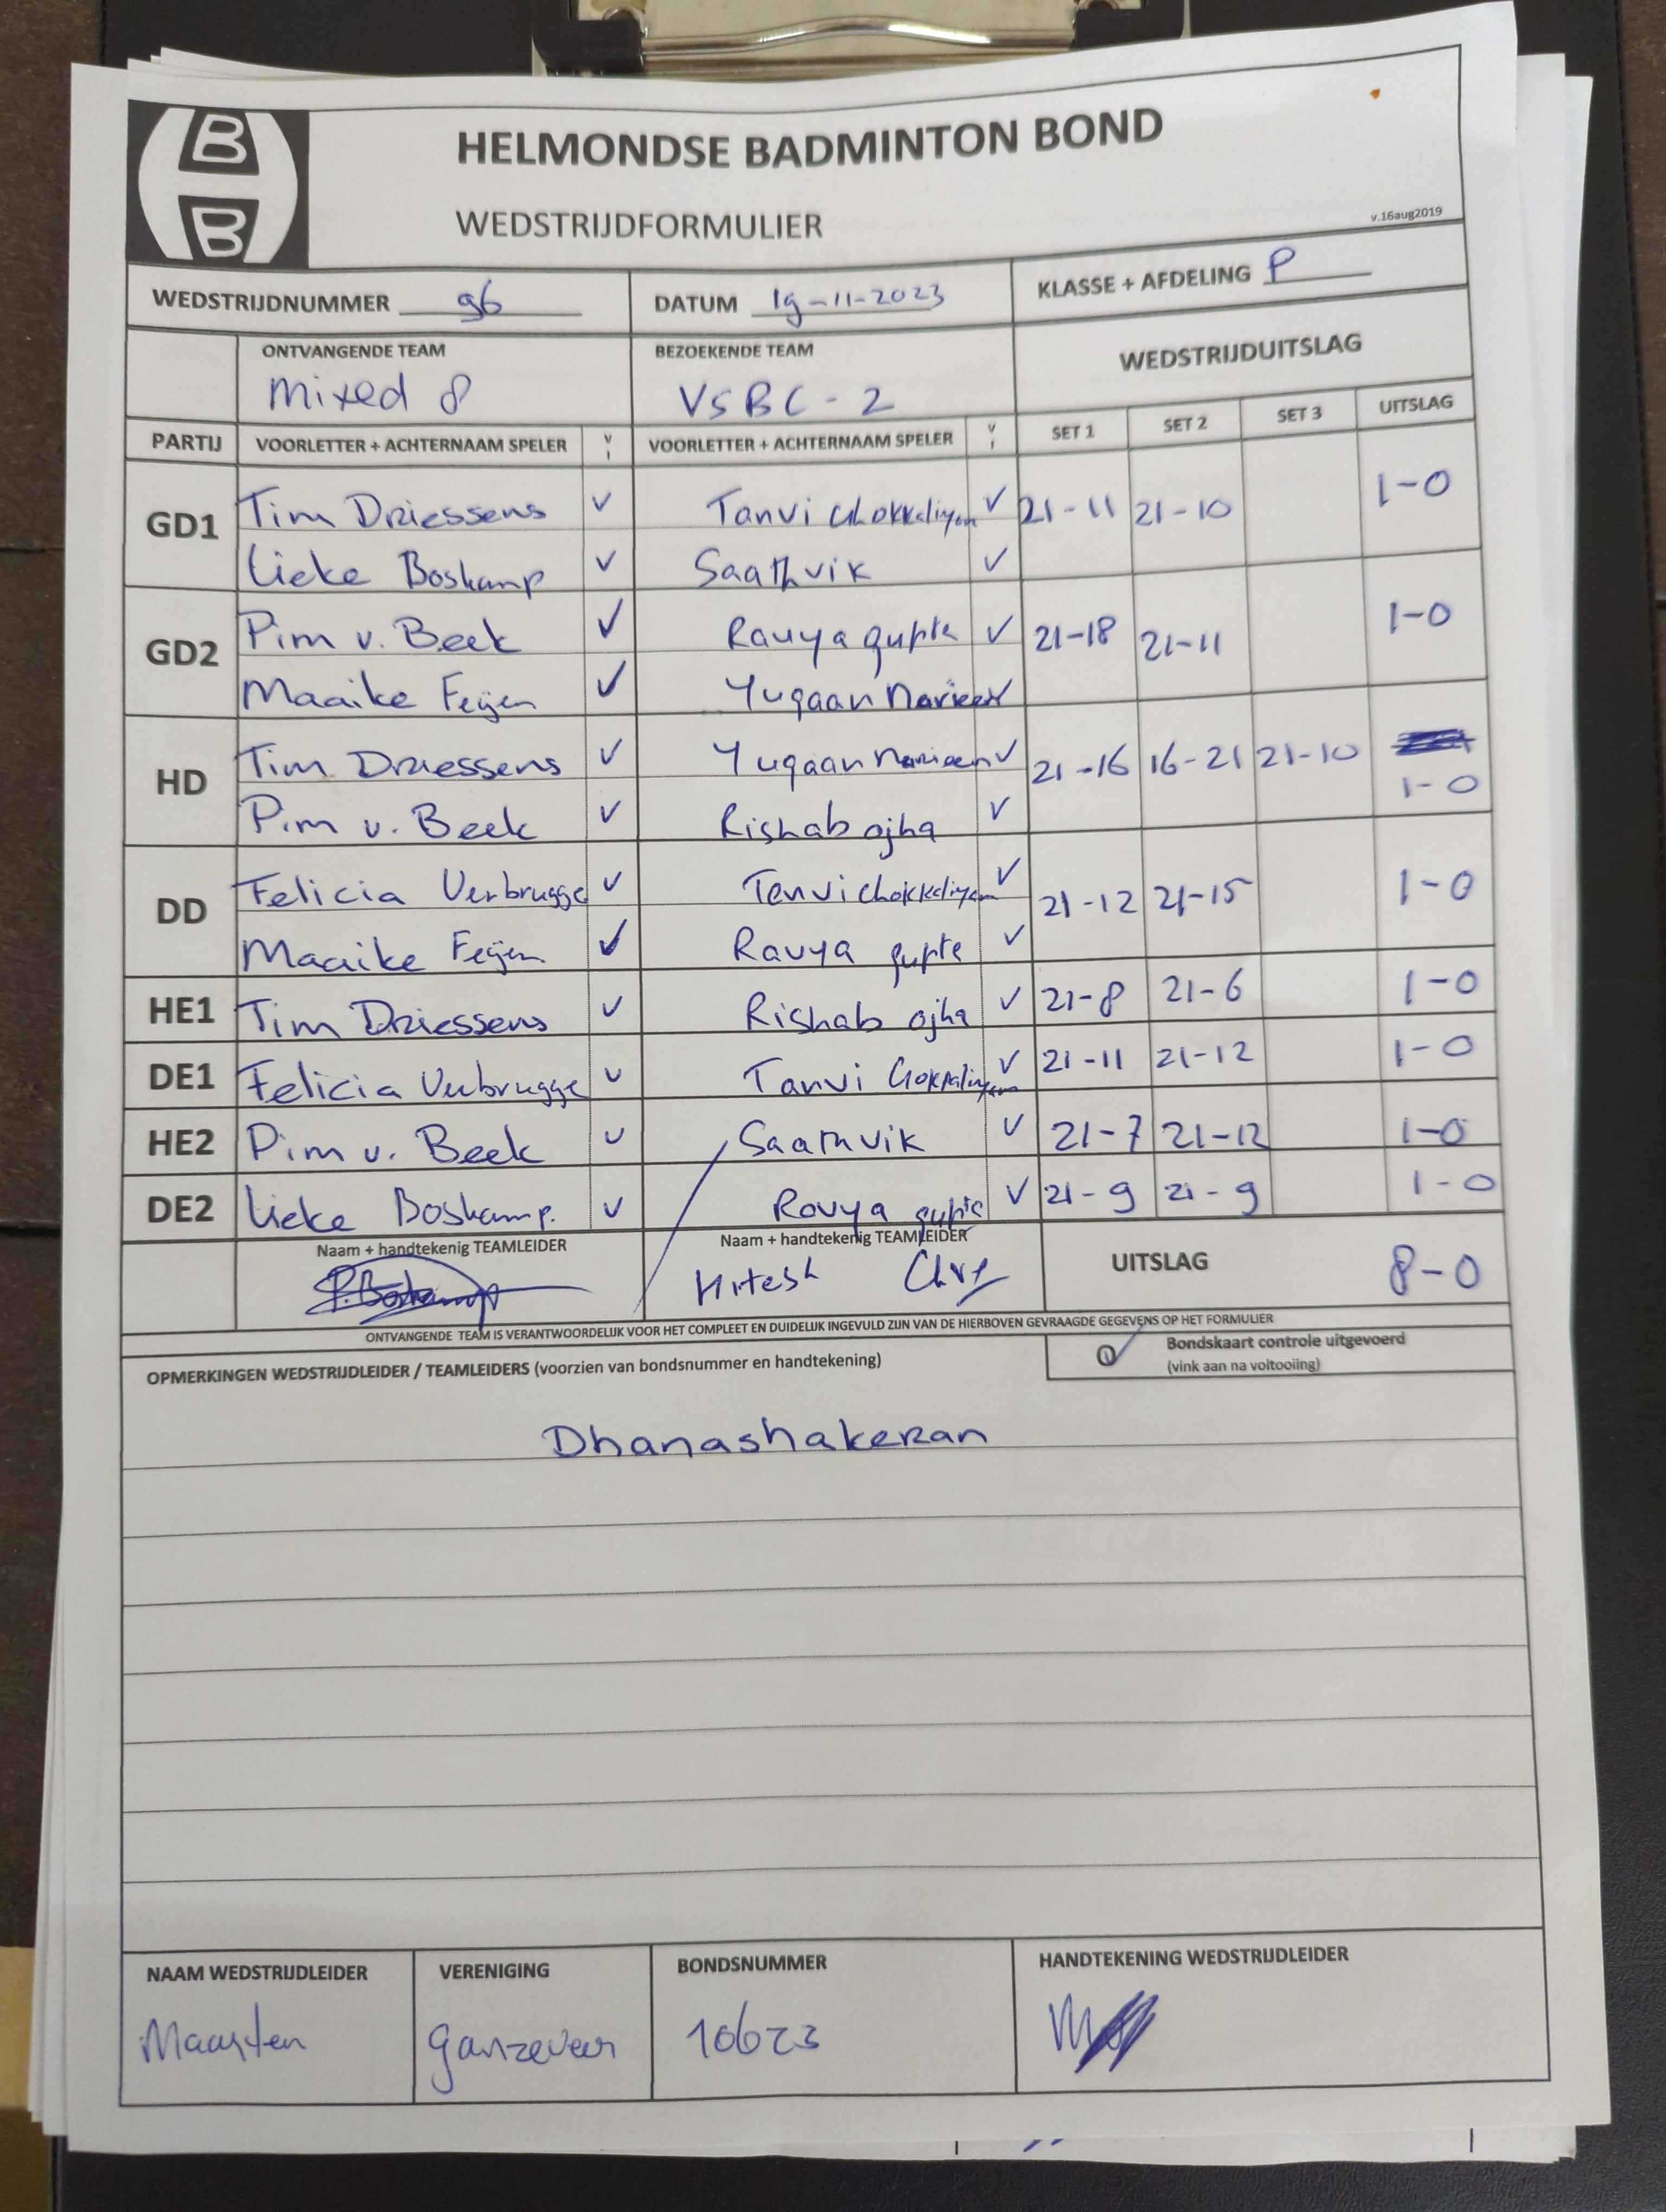 B
B
HELMONDSE BADMINTON BOND
WEDSTRIJDFORMULIER
v.16aug2019
WEDSTRIJDNUMMER 96 DATUM 19-11-2023 KLASSE + AFDELING P
ONTVANGENDE TEAM BEZOEKENDE TEAM WEDSTRIJDUITSLAG
Mixed 8 VSBC-2
PARTIJ VOORLETTER + ACHTERNAAM SPELER V I VOORLETTER + ACHTERNAAM SPELER V I SET 1 SET 2 SET 3 UITSLAG
GD1 Tim Driessens ✓ Tanvi ✓ 21-11 21-10 1-0
Lieke Boskamp ✓ Saathvik ✓
GD2 Pim v. Beek ✓ Ravya gupta ✓ 21-18 21-11 1-0
Maaike Feijen ✓ Yugaan
HD Tim Driessens ✓ Yugaan ✓ 21-16 16-21 21-10 1-0
Pim v. Beek ✓ Rishab ojha ✓
DD Felicia Verbrugge ✓ Tenvi chokkalingam ✓ 21-12 21-15 1-0
Maaike Feijen ✓ Ravya gupte ✓
HE1 Tim Driessens ✓ Rishab ojha ✓ 21-8 21-6 1-0
DE1 Felicia Verbrugge ✓ Tanvi ✓ 21-11 21-12 1-0
HE2 Pim v. Beek ✓ Saathvik ✓ 21-7 21-12 1-0
DE2 Lieke Boskamp. ✓ Ravya gupta ✓ 21-9 21-9 1-0
Naam + handtekenig TEAMLEIDER Naam + handtekenig TEAMLEIDER UITSLAG 8-0
Hitesh
ONTVANGENDE TEAM IS VERANTWOORDELIJK VOOR HET COMPLEET EN DUIDELIJK INGEVULD ZIJN VAN DE HIERBOVEN GEVRAAGDE GEGEVENS OP HET FORMULIER
OPMERKINGEN WEDSTRIJDLEIDER / TEAMLEIDERS (voorzien van bondsnummer en handtekening) Bondskaart controle uitgevoerd
(vink aan na voltooiing)
Dhanashakeran
NAAM WEDSTRIJDLEIDER VERENIGING BONDSNUMMER HANDTEKENING WEDSTRIJDLEIDER
Maarten Ganzeveer 10623